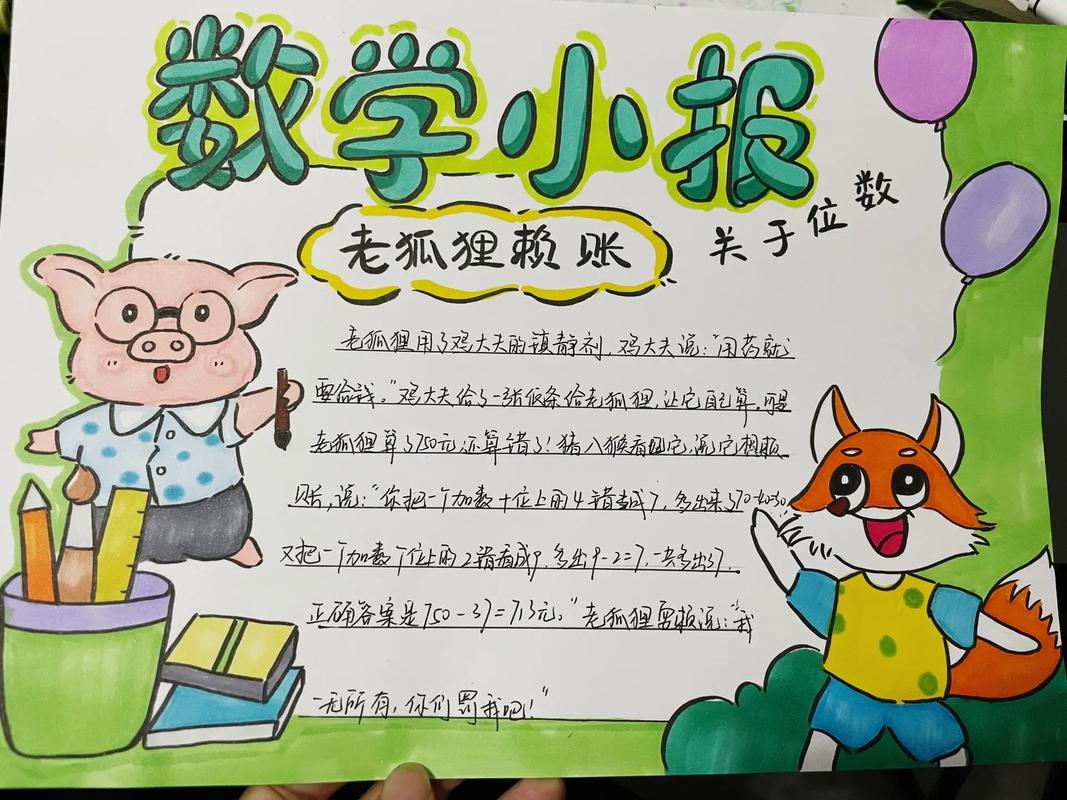 数学小报
老狐狸赖账
关于位数
老狐狸用了鸡大夫的镇静剂,鸡大夫说:"用药就
要给钱。"鸡大夫给了一张纸条给老狐狸,让它自己算,可是
老狐狸算了750元,还算错了!猪八猴看见它,说它想赖
账,说:"你把一个加数十位上的4错当成7,多出来了70-40=30,
又把一个加数个位上的2错看成9,多出9-2=7,一共多出37,
正确答案是750-37=713元。"老狐狸耍赖说:"我
一无所有,你们罚我吧!"